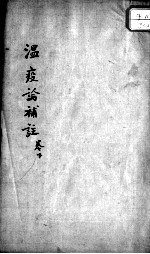 温疫論補註卷下